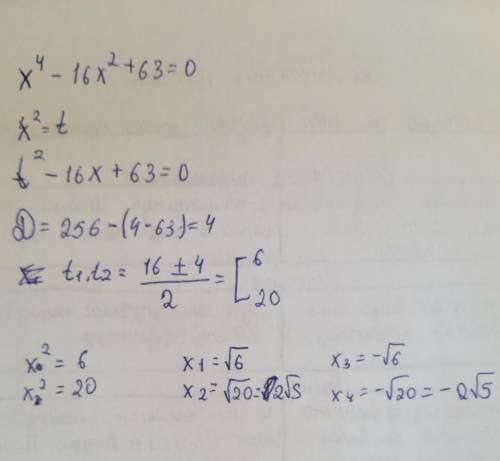 x⁴ - 16x² + 63 = 0
x² = t
t² - 16x + 63 = 0
D = 256 - (4 - 63) = 4
t₁, t₂ = (16 ± 4)/2 = [6 20
x² = 6 x₁ = √6 x₃ = -√6
x₂² = 20 x₂ = √20 = 2√5 x₄ = -√20 = -2√5